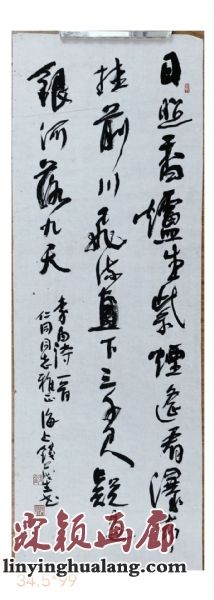 日照香爐生紫煙遙看瀑布
挂前川飛流直下三千尺疑是
銀河落九天
李白詩一首
仁同同志雅正 海上錢
颖画廊
linyinghualang.com
34.5*99